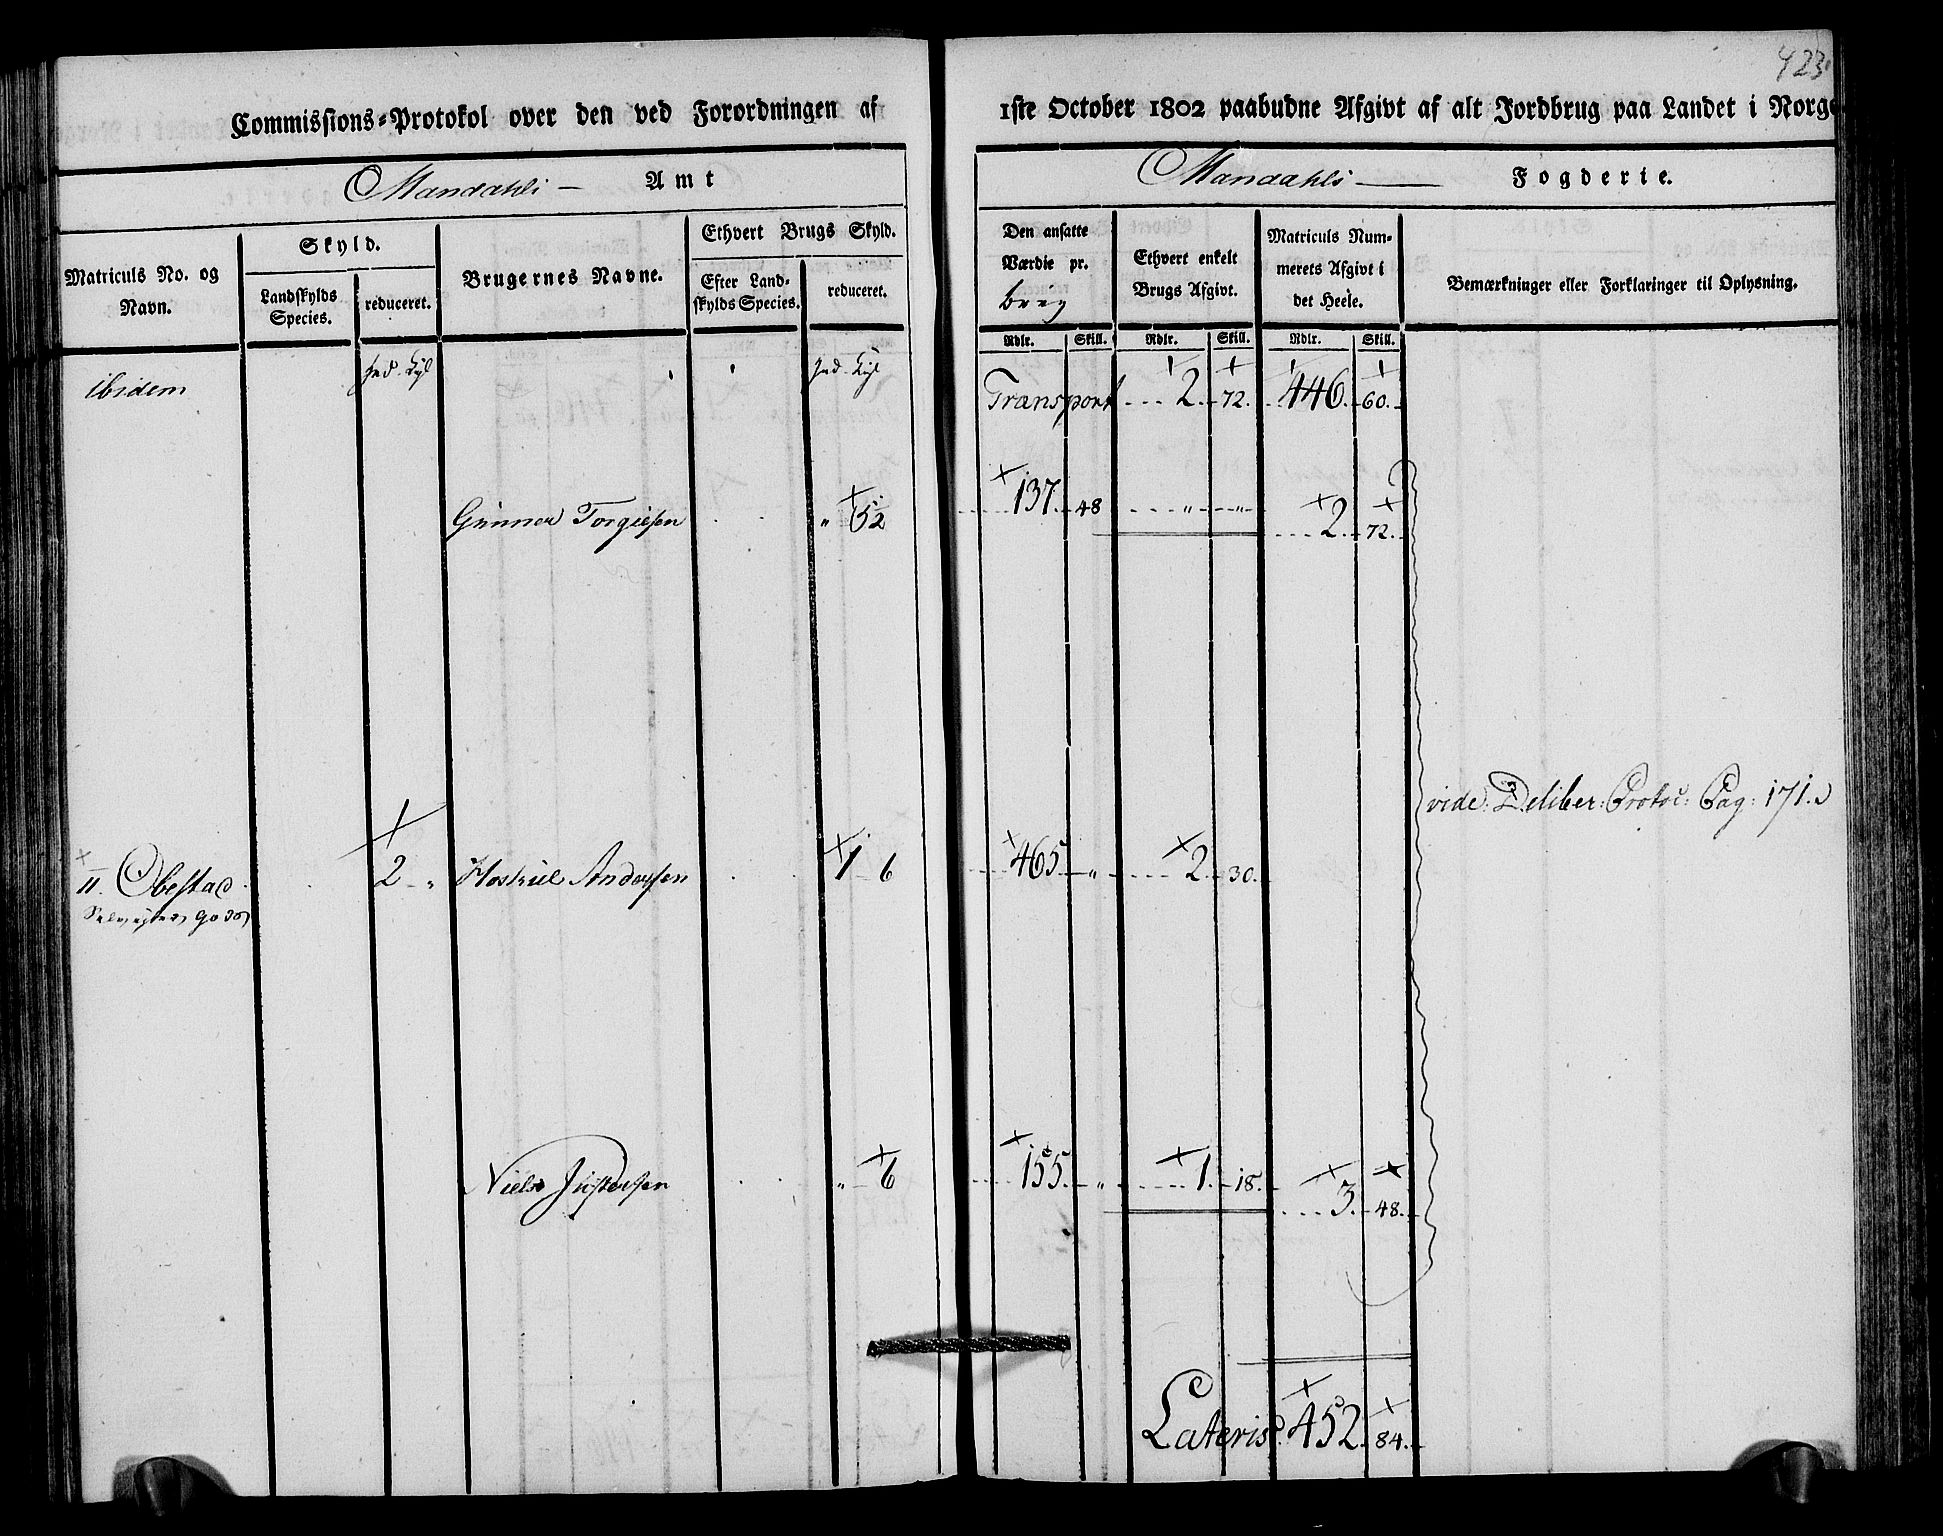 423
Commissions-Protokol over den ved Forordningen af 1ste October 1802 paabudne Afgivt af alt Jordbrug paa Landet i Norge
Mandahls — Amt
Mandahls — Fogderie.
Matriculs No. og Navn.
Skyld.
Landskylds Species.
reduceret.
Brugernes Navne.
Ethvert Brugs Skyld.
Efter Landskylds Species.
reduceret.
Den ansatte Værdie pr. brug
Ethvert enkelt Brugs Afgivt.
Matriculs Nummerets Afgivt i det Heele.
Bemærkninger eller Forklaringer til Oplysning.
Rdlr. Skill. Rdlr. Skill. Rdlr. Skill.
ibidem
Transport 2. 72. 446. 60.
Gunner Torgiesen " 5½ 137. 48 " " 2. 72.
vide: Deliber: Protoc: Pag: 171.
11. Obestad 2 " Hoskul Andersen 1 6 465 " 2. 30.
Niels Justersen " 6 155. " 1. 18. 3. 48.
Lateris 452. 84.